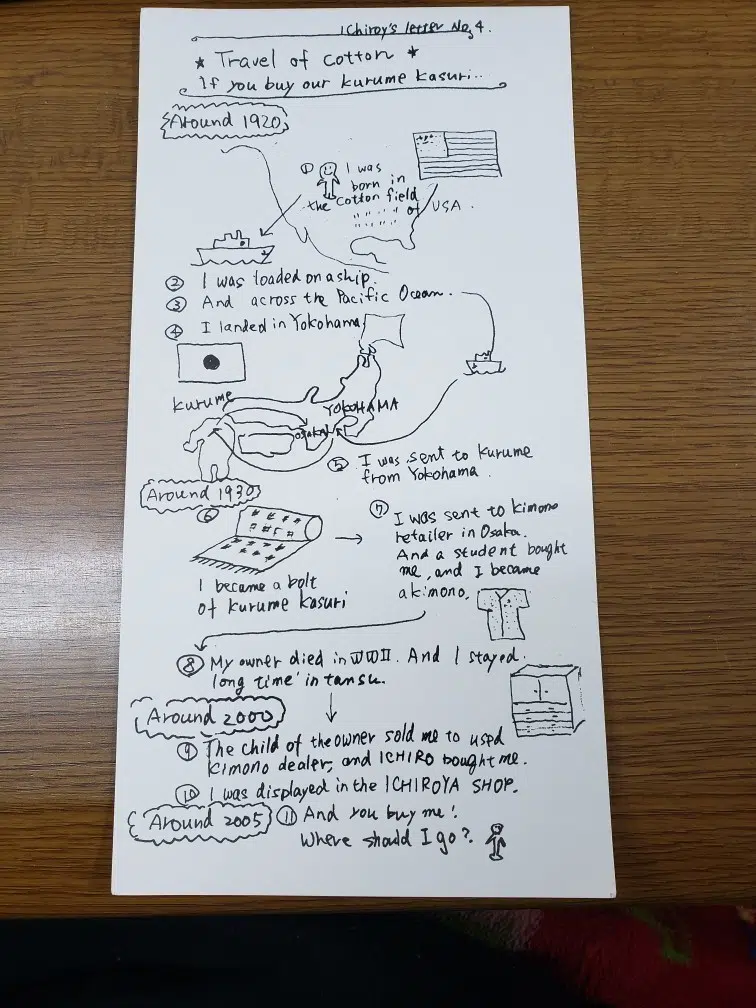 Ichiroy's letter No,4.
* Travel of cotton *
If you buy our kurume kasuri..
Around 1920
① I was
born in
the cotton field
of USA.
② I was loaded on a ship.
③ And across the Pacific Ocean.
④ I landed in Yokohama
kurume
YOKOHAMA
OSAKA
⑤ I was sent to kurume
from Yokohama.
Around 1930
⑥
I became a bolt
of kurume kasuri
⑦ I was sent to kimono
retailer in Osaka.
And a student bought
me, and I became
a kimono.
⑧ My owner died in WWII. And I stayed
long time in tansu.
Around 2000
⑨ The child of the owner sold me to used
kimono dealer, and ICHIRO bought me.
⑩ I was displayed in the ICHIROYA SHOP.
Around 2005
⑪ And you buy me!
Where should I go?